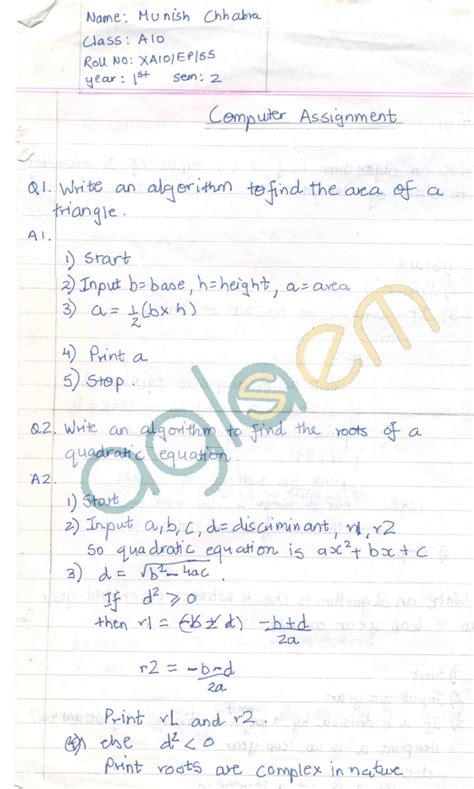 Name: Munish Chhabra
Class: A10
Roll No: XA10/EP/55
year: 1st sem: 2
Computer Assignment
Q1. Write an algorithm to find the area of a
triangle.
A1.
1) Start
2) Input b=base, h=height, a=area
3) a = 1/2 (b×h)
4) Print a
5) Stop
Q2. Write an algorithm to find the roots of a
quadratic equation.
A2.
1) Start
2) Input a,b,c, d=discriminant, r1, r2
So quadratic equation is ax²+bx+c
3) d = √b²-4ac.
If d² ≥ 0
then r1 = -b+d/2a
r2 = -b-d/2a
Print r1 and r2.
else d² < 0
Print roots are complex in nature
aglasem